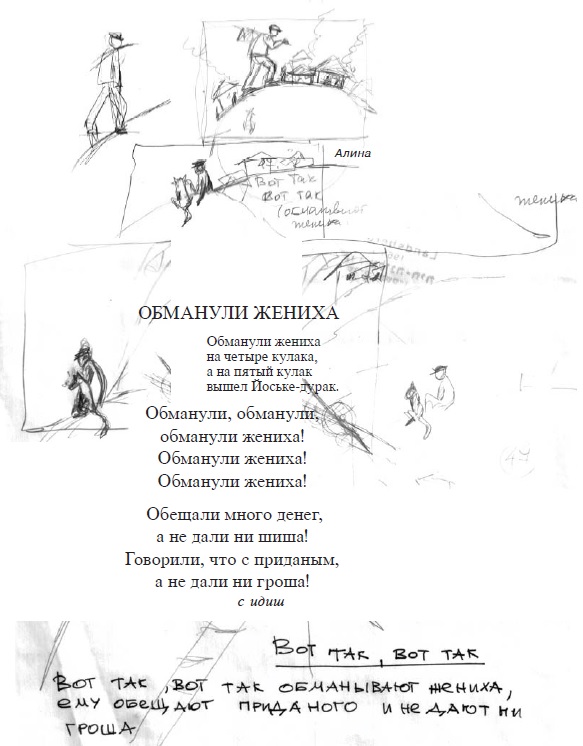 Алина
Вот так
Вот так
(обманывают
жениха
жениха
ОБМАНУЛИ ЖЕНИХА
Обманули жениха
на четыре кулака,
а на пятый кулак
вышел Йоське-дурак.
Обманули, обманули,
обманули жениха!
Обманули жениха!
Обманули жениха!
47
Обещали много денег,
а не дали ни шиша!
Говорили, что с приданым,
а не дали ни гроша!
с идиш
Вот так, вот так
Вот так, вот так обманывают жениха,
ему обещают приданого и не дают ни
гроша